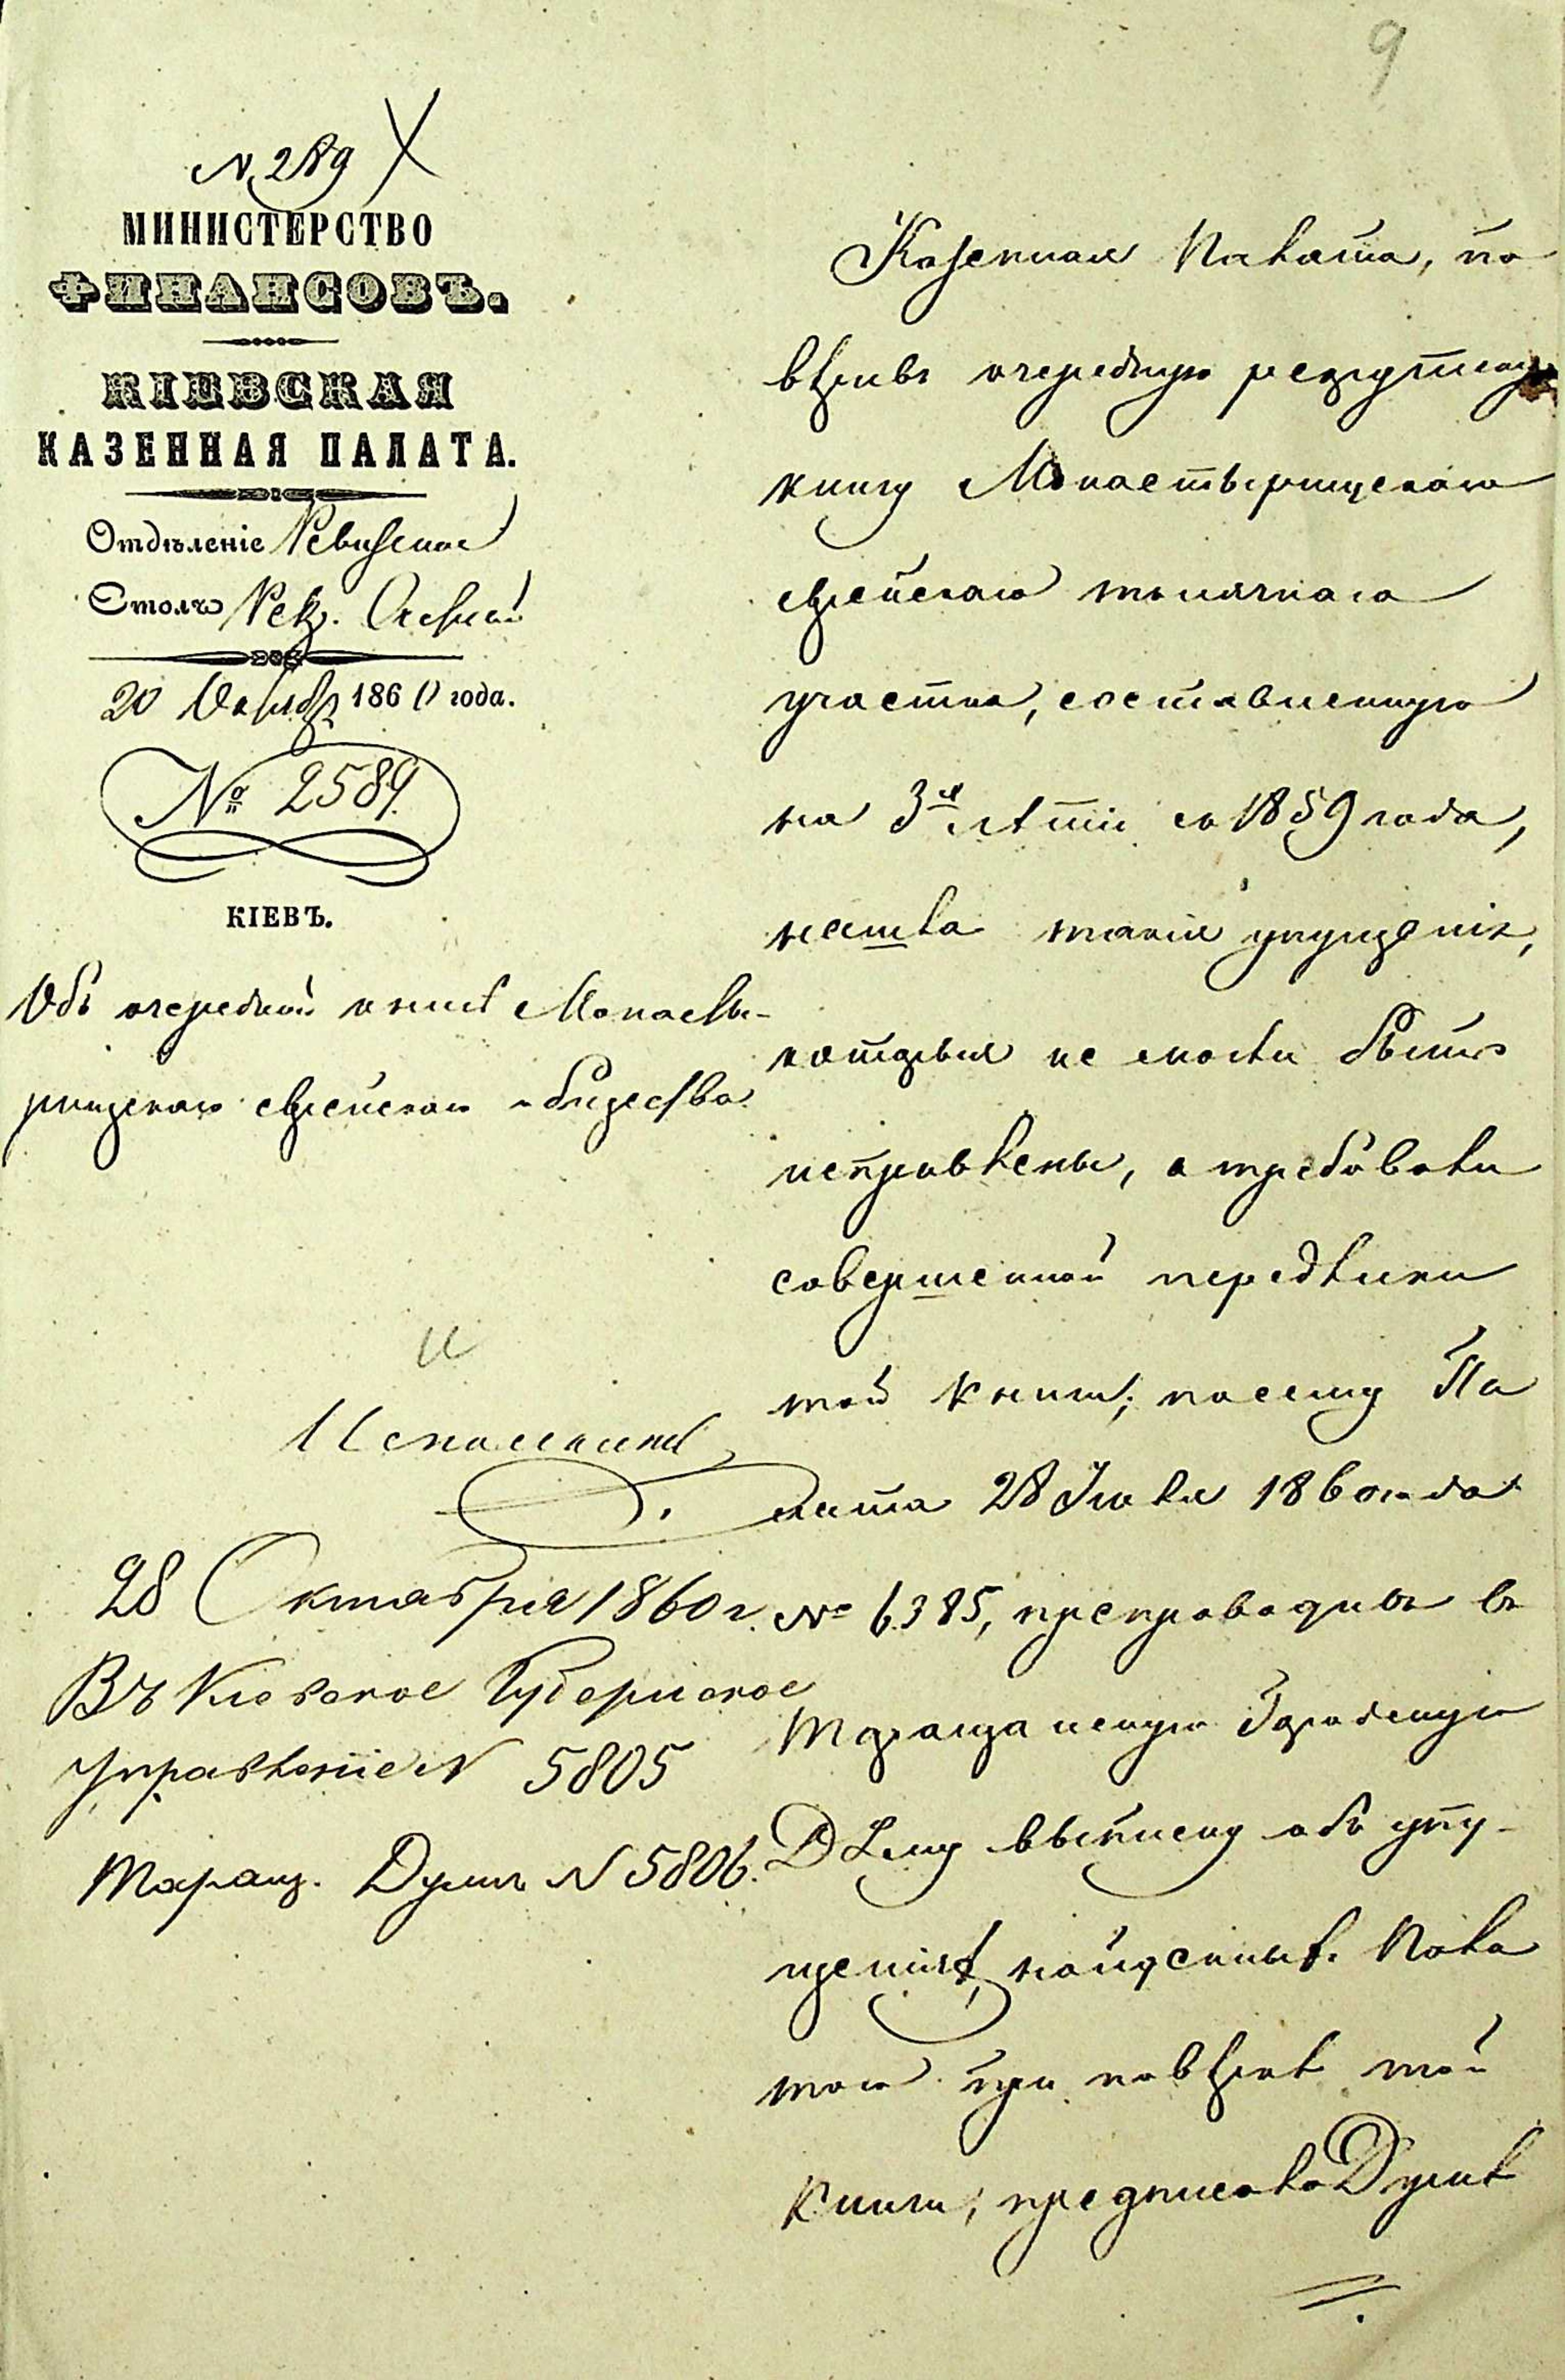 9
N. 289
МИНИСТЕРСТВО
ФИНАНСОВЪ.
КІЕВСКАЯ
КАЗЕННАЯ ПАЛАТА.
Отдѣленіе Ревизское
Столъ Рек.
20 Октября 1860 года.
№ 2589.
КІЕВЪ.
Объ очередной книгѣ Монасты-
рищскаго еврейскаго общества.
28 Октября 1860 г.
Въ Кіевское Губернское
Управленіе N 5805
Таращ. Думѣ N 5806.
Казенная Палата, по
вѣривъ очередную рекрутскую
книгу Монастырищскаго
еврейскаго тысячнаго
участка, составленную
на 3е лѣтіе съ 1859 года,
нашла такія упущенія,
которыя не могли быть
исправлены, а требовали
совершенной передѣлки
той книги; посему Па
лата 28 Іюля 1860 года
№ 6385, препроводивъ въ
Таращанскую Городскую
Думу выписку объ упу-
щеніяхъ, найденныхъ Пала
тою при повѣркѣ той
книги, предписала Думѣ